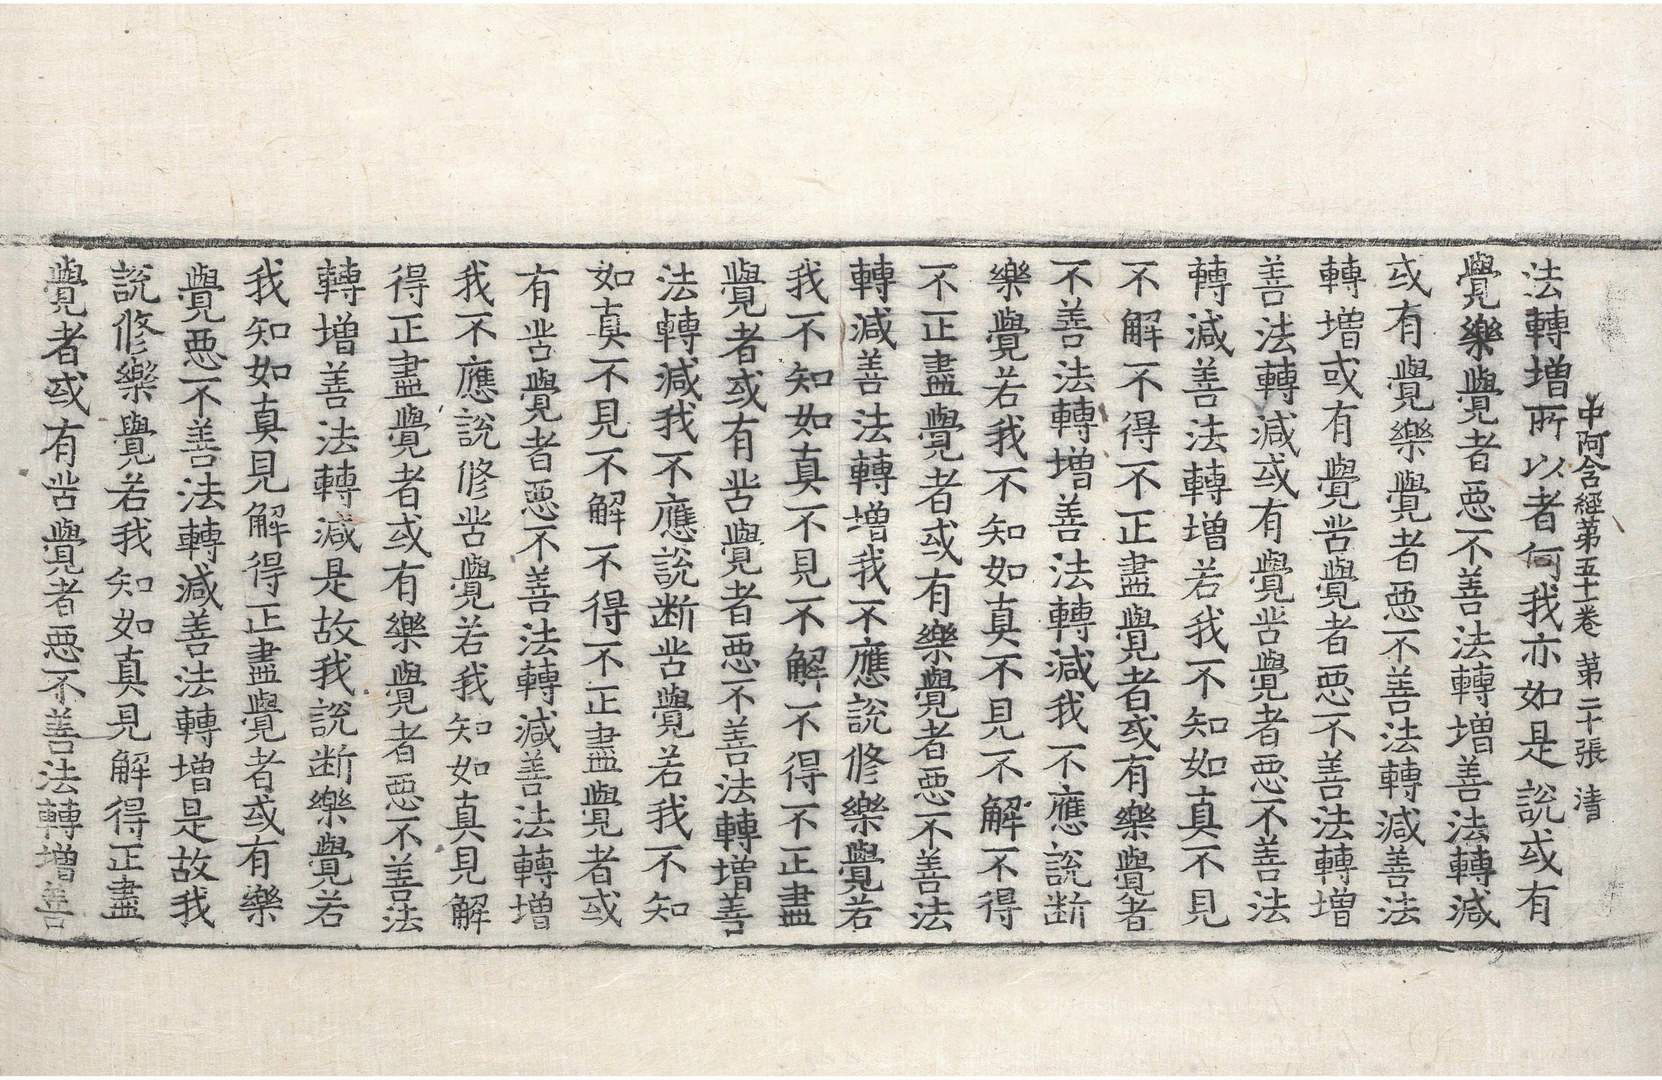 中阿含經第五十卷 第二十張 清
法轉增所以者何我亦如是說或有
覺樂覺者惡不善法轉增善法轉減
或有覺樂覺者惡不善法轉減善法
轉增或有覺苦覺者惡不善法轉增
善法轉減或有覺苦覺者惡不善法
轉減善法轉增若我不知如真不見
不解不得不正盡覺者或有樂覺者
不善法轉增善法轉減我不應說断
樂覺若我不知如真不見不解不得
不正盡覺者或有樂覺者惡不善法
轉減善法轉增我不應說修樂覺若
我不知如真不見不解不得不正盡
覺者或有苦覺者惡不善法轉增善
法轉減我不應說断苦覺若我不知
如真不見不解不得不正盡覺者或
有苦覺者惡不善法轉減善法轉增
我不應說修苦覺若我知如真見解
得正盡覺者或有樂覺者惡不善法
轉增善法轉減是故我說断樂覺若
我知如真見解得正盡覺者或有樂
覺惡不善法轉減善法轉增是故我
說修樂覺若我知如真見解得正盡
覺者或有苦覺者惡不善法轉增善